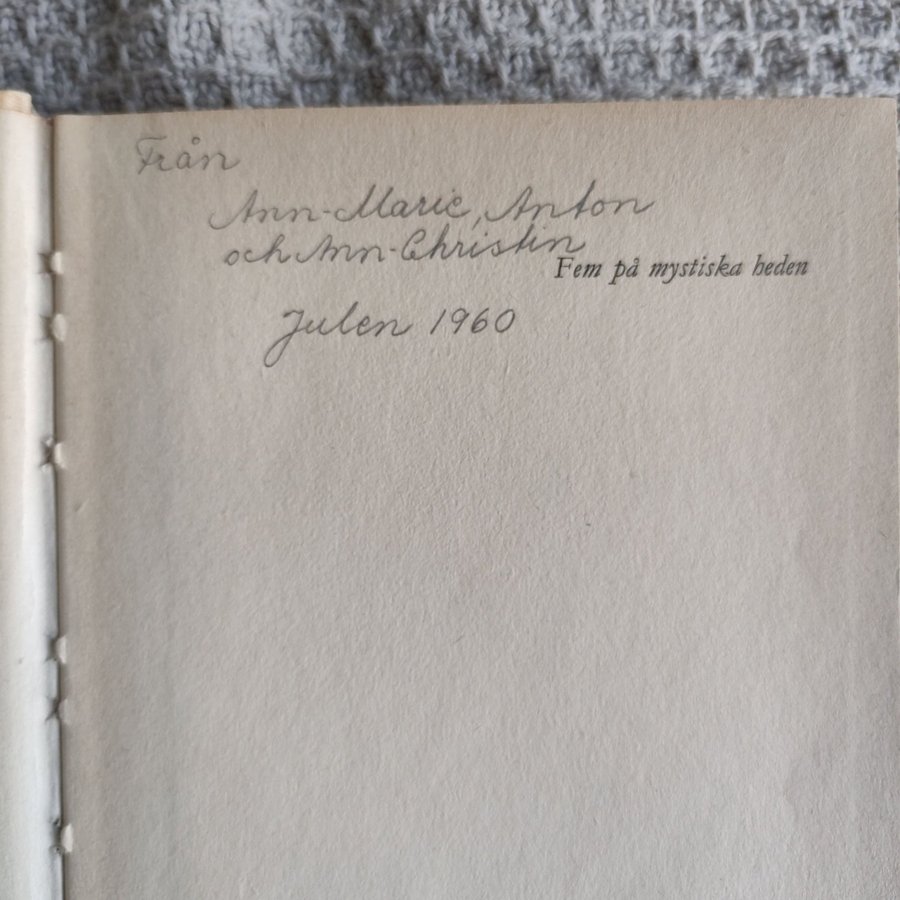 Från
Ann-Marie, Anton
och Ann-Christin
Fem på mystiska heden
Julen 1960